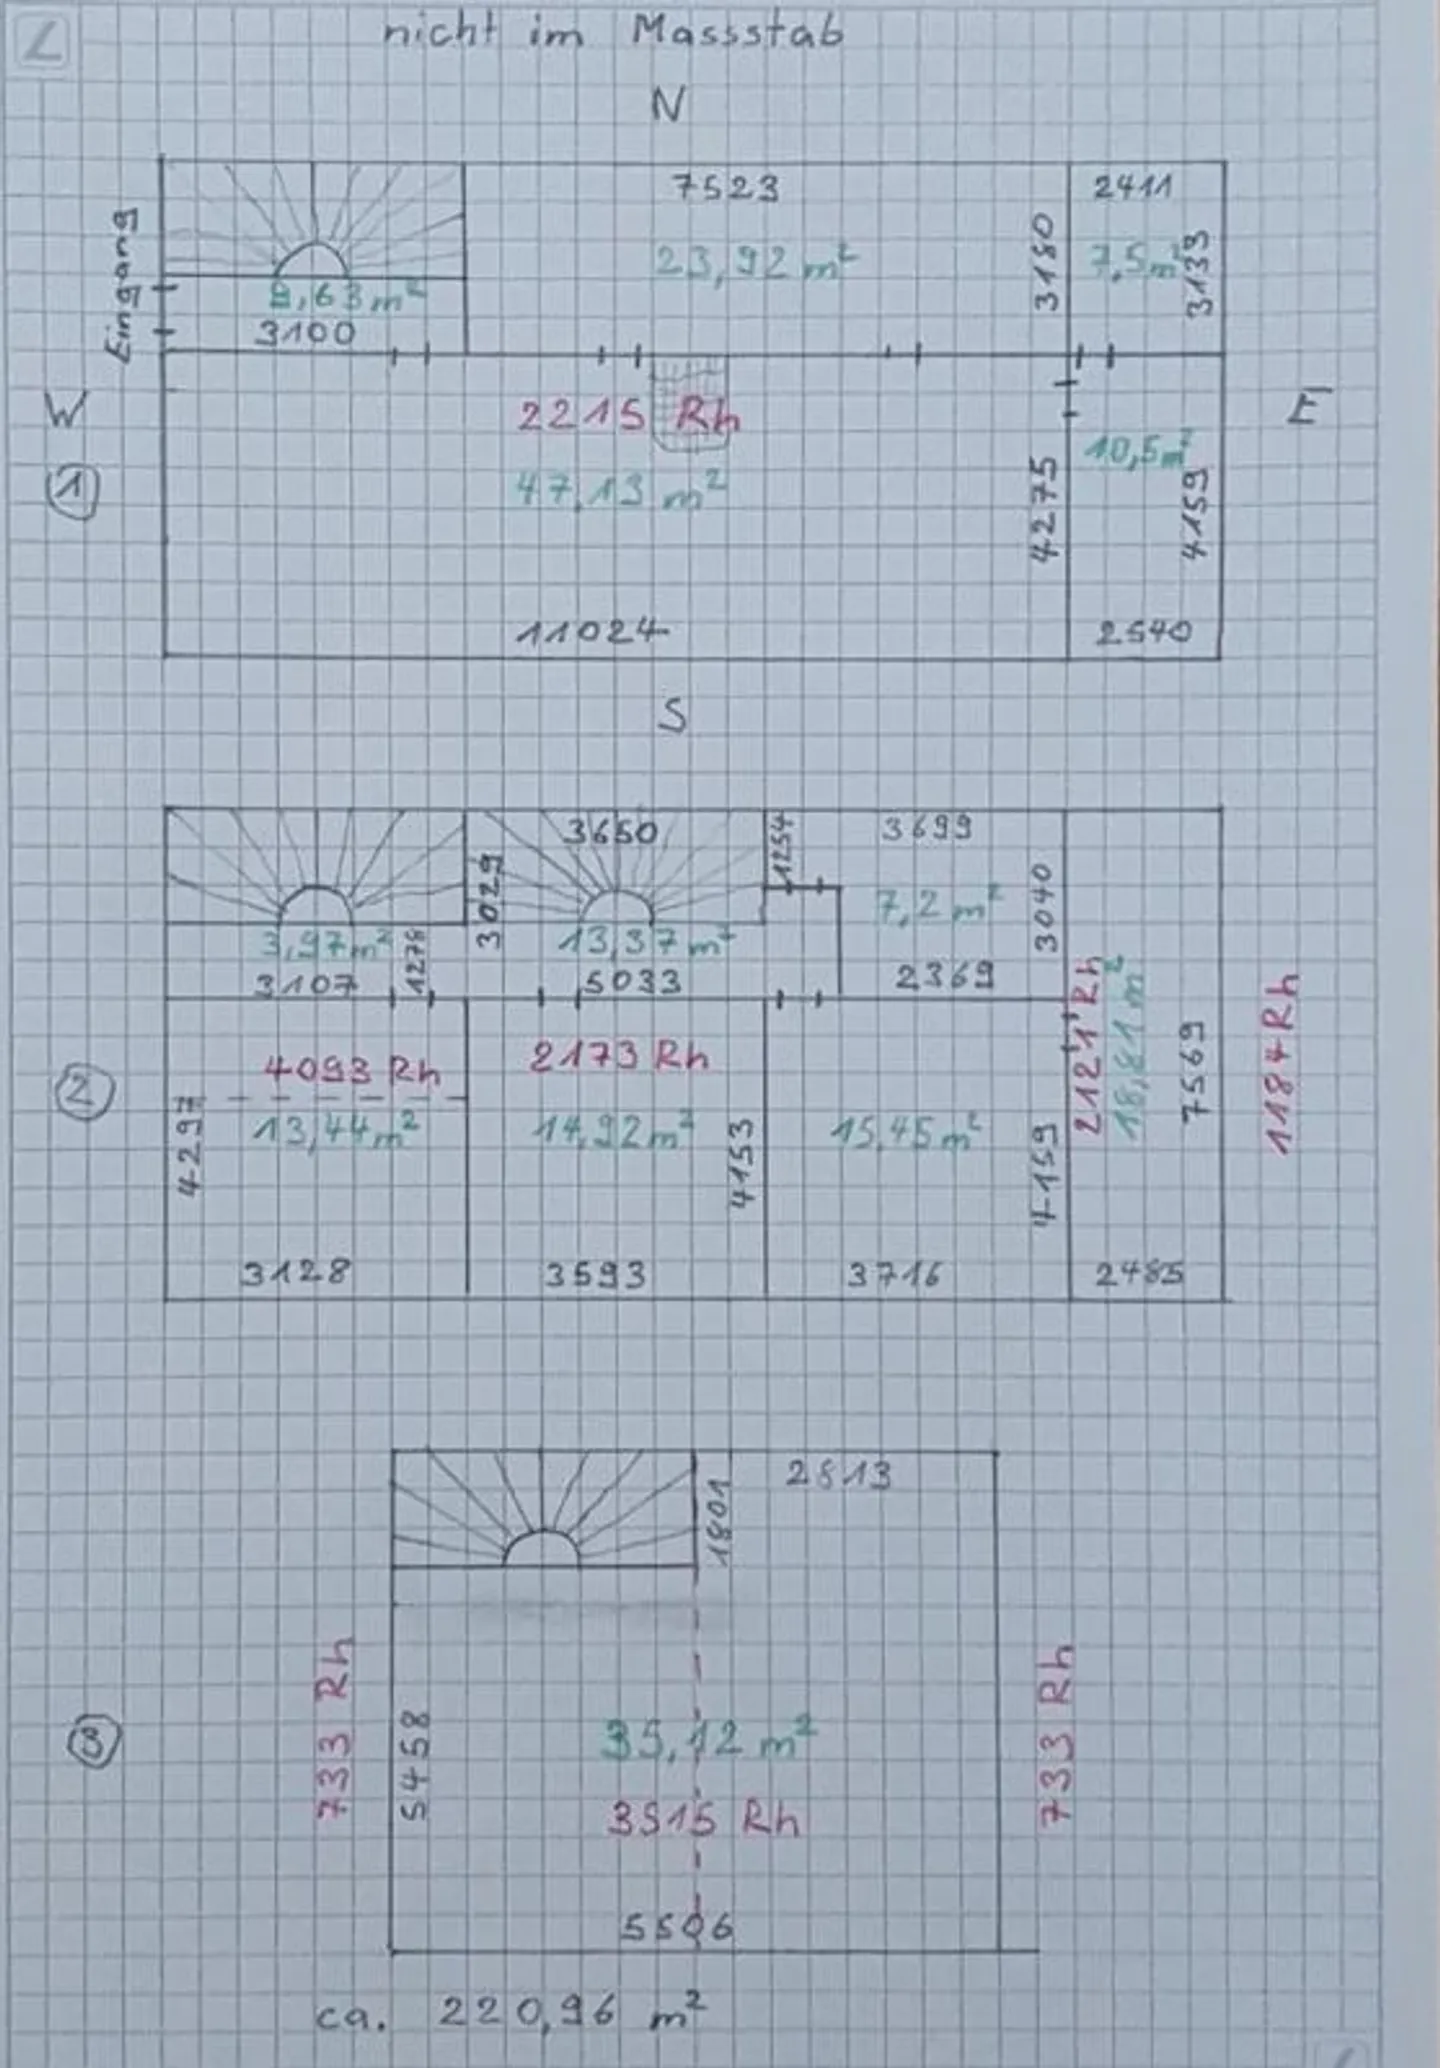 nicht im Massstab
N
7523
2411
Eingang
23,92 m²
3180
7,5 m²
3133
9,63 m²
3100
W
2215 Rh
E
1
47,13 m²
4275
10,5 m²
4159
11024
2540
S
3650
1254
3699
3029
7,2 m²
3040
3,97 m²
1278
13,37 m²
3107
5033
2369
2
4093 Rh
2173 Rh
2121 Rh
18,81 m²
7569
1184 Rh
4297
13,44 m²
14,92 m²
4153
15,45 m²
4159
3128
3593
3716
2485
2813
1801
3
733 Rh
5458
35,12 m²
3515 Rh
733 Rh
5506
ca. 220,96 m²